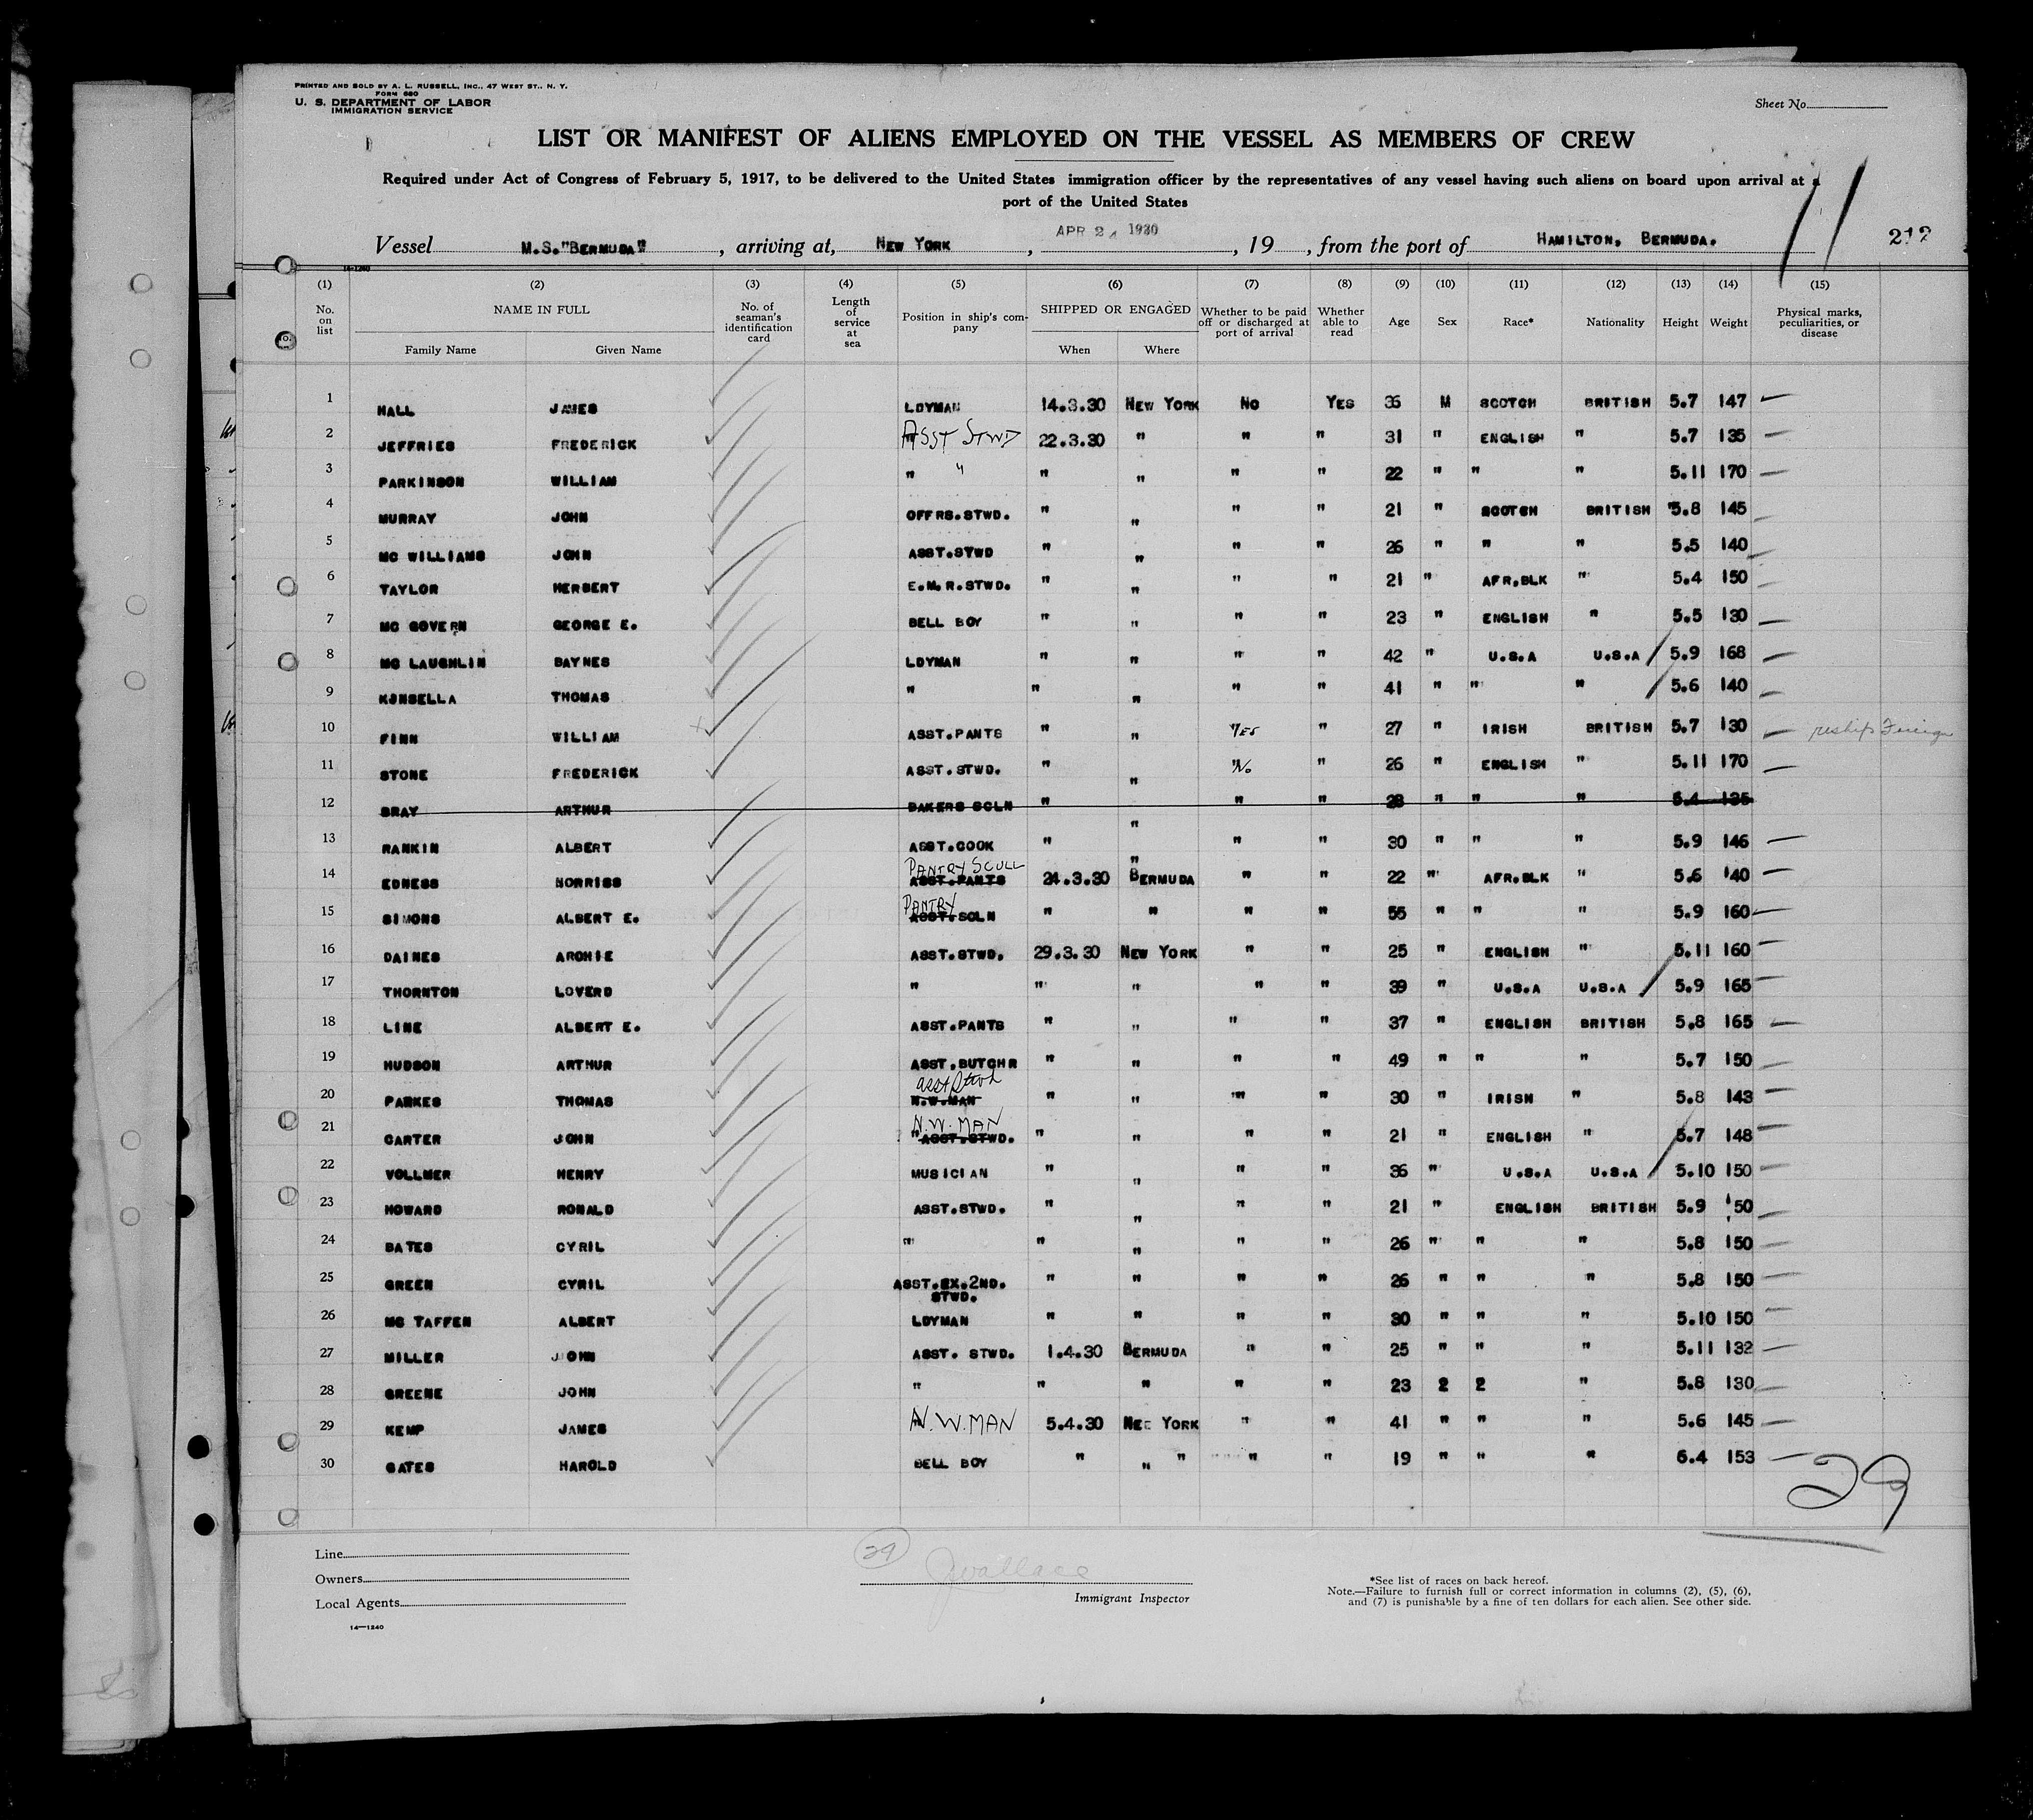 PRINTED AND SOLD BY A. L. RUSSELL, INC., 47 WEST ST., N. Y.
FORM 680
U. S. DEPARTMENT OF LABOR
IMMIGRATION SERVICE
Sheet No.
LIST OR MANIFEST OF ALIENS EMPLOYED ON THE VESSEL AS MEMBERS OF CREW
Required under Act of Congress of February 5, 1917, to be delivered to the United States immigration officer by the representatives of any vessel having such aliens on board upon arrival at a
port of the United States
11
Vessel M.S."BERMUDA", arriving at, NEW YORK, APR 2 1930, 19 , from the port of HAMILTON, BERMUDA. 212
14-1240
(1) (2) (3) (4) (5) (6) (7) (8) (9) (10) (11) (12) (13) (14) (15)
No. on list NAME IN FULL Family Name Given Name No. of seaman's identification card Length of service at sea Position in ship's company SHIPPED OR ENGAGED When Where Whether to be paid off or discharged at port of arrival Whether able to read Age Sex Race* Nationality Height Weight Physical marks, peculiarities, or disease
1 HALL JAMES LDYMAN 14.3.30 NEW YORK NO YES 36 M SCOTCH BRITISH 5.7 147
2 JEFFRIES FREDERICK ASST STWD 22.3.30 " " " 31 " ENGLISH " 5.7 135
3 PARKINSON WILLIAM " " " " " " 22 " " " 5.11 170
4 MURRAY JOHN OFFRS.STWD. " " " " 21 " SCOTCH BRITISH 5.8 145
5 MC WILLIAMS JOHN ASST.STWD " " " " 26 " " " 5.5 140
6 TAYLOR HERBERT E.M.R.STWD. " " " " 21 " AFR.BLK " 5.4 150
7 MC GOVERN GEORGE E. BELL BOY " " " " 23 " ENGLISH " 5.5 130
8 MC LAUGHLIN BAYNES LDYMAN " " " " 42 " U.S.A U.S.A 5.9 168
9 KINSELLA THOMAS " " " " " 41 " " " 5.6 140
10 FINN WILLIAM ASST.PANTS " " YES " 27 " IRISH BRITISH 5.7 130 reship Foreign
11 STONE FREDERICK ASST.STWD. " " No " 26 " ENGLISH " 5.11 170
12 BRAY ARTHUR BAKERS SCLN " " " " 28 " " " 5.4 135
13 RANKIN ALBERT ASST.COOK " " " " 30 " " " 5.9 146
14 EDNESS NORRISS PANTRY SCULL ASST.PANTS 24.3.30 BERMUDA " " 22 " AFR.BLK " 5.6 140
15 SIMONS ALBERT E. PANTRY ASST.SCLN " " " " 55 " " " 5.9 160
16 DAINES ARCHIE ASST.STWD. 29.3.30 NEW YORK " " 25 " ENGLISH " 5.11 160
17 THORNTON LOVERD " " " " " 39 " U.S.A U.S.A 5.9 165
18 LINE ALBERT E. ASST.PANTS " " " " 37 " ENGLISH BRITISH 5.8 165
19 HUDSON ARTHUR ASST.BUTCHR " " " " 49 " " " 5.7 150
20 PARKES THOMAS asst Stwd N.W.MAN " " " " 30 " IRISH " 5.8 143
21 CARTER JOHN N.W.MAN "ASST.STWD. " " " " 21 " ENGLISH " 5.7 148
22 VOLLMER HENRY MUSICIAN " " " " 36 " U.S.A U.S.A 5.10 150
23 HOWARD RONALD ASST.STWD. " " " " 21 " ENGLISH BRITISH 5.9 150
24 BATES CYRIL " " " " " 26 " " " 5.8 150
25 GREEN CYRIL ASST.EX.2ND. STWD. " " " " 26 " " " 5.8 150
26 MC TAFFEN ALBERT LDYMAN " " " " 30 " " " 5.10 150
27 MILLER JOHN ASST. STWD. 1.4.30 BERMUDA " " 25 " " " 5.11 132
28 GREENE JOHN " " " " " 23 2 2 " 5.8 130
29 KEMP JAMES N.W.MAN 5.4.30 NEE YORK " " 41 " " " 5.6 145
30 GATES HAROLD BELL BOY " " " " " 19 " " " 6.4 153
29
Line
Owners
Local Agents
29
JWallace
Immigrant Inspector
*See list of races on back hereof.
Note.—Failure to furnish full or correct information in columns (2), (5), (6),
and (7) is punishable by a fine of ten dollars for each alien. See other side.
14—1240